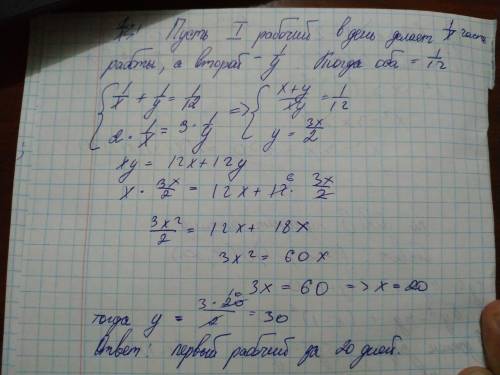 Пусть I рабочий в день делает 1/x часть
работы, а второй - 1/y Тогда оба = 1/12
{ 1/x + 1/y = 1/12 => { (x+y)/xy = 1/12
2 · 1/x = 3 · 1/y y = 3x/2
xy = 12x + 12y
x · 3x/2 = 12x + 12 6 · 3x/2
3x²/2 = 12x + 18x
3x² = 60x
3x = 60 => x = 20
тогда y = 3 · 20 10 / 2 = 30
Ответ: первый рабочий за 20 дней.